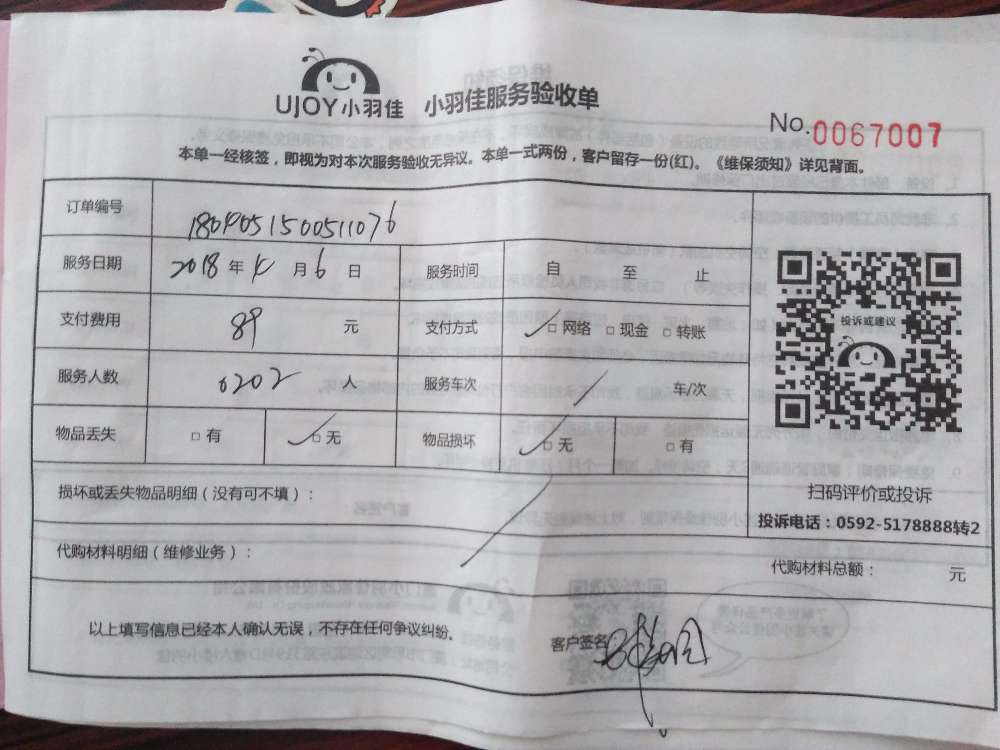 UJOY小羽佳 小羽佳服务验收单
No.0067007
本单一经核签，即视为对本次服务验收无异议。本单一式两份，客户留存一份(红)。《维保须知》详见背面。
订单编号 1804051500511076
服务日期 2018 年 4 月 6 日 服务时间 自 至 止
支付费用 89 元 支付方式 ✓□ 网络 □ 现金 □ 转账
服务人数 0202 人 服务车次 / 车/次
物品丢失 □ 有 ✓□ 无 物品损坏 ✓□ 无 □ 有
损坏或丢失物品明细（没有可不填）：
代购材料明细（维修业务）：
代购材料总额： 元
以上填写信息已经本人确认无误，不存在任何争议纠纷。
客户签名
投诉或建议
扫码评价或投诉
投诉电话：0592-5178888转2